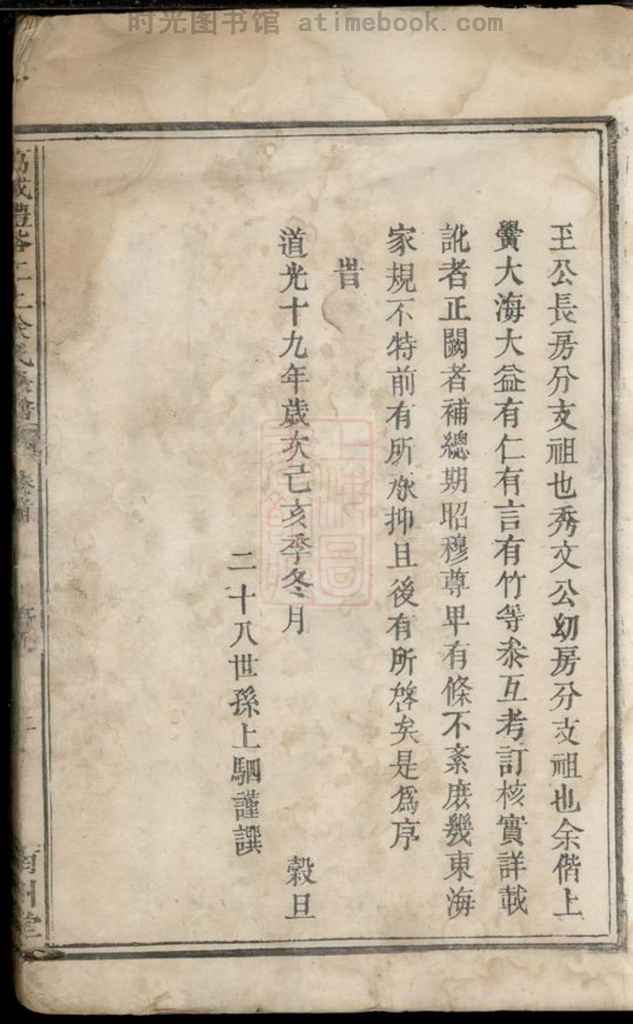 时光图书馆 atimebook.com
王公長房分支祖也秀文公幼房分支祖也余偕上
黌大海大益有仁有言有竹等叅互考訂核實詳載
訛者正闕者補總期昭穆尊卑有條不紊庶幾東海
家規不特前有所承抑且後有所啓矣是爲序
旹
道光十九年歲次己亥季冬月 穀旦
二十八世孫上駟謹譔